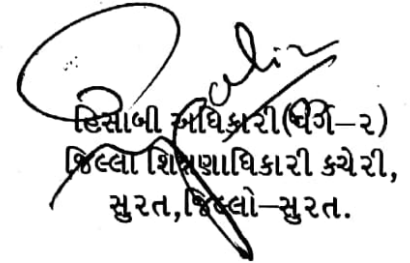 હિસાબી અધિકારી(વર્ગ–૨)
જિલ્લા શિક્ષણાધિકારી કચેરી,
સુરત,જિલ્લો–સુરત.